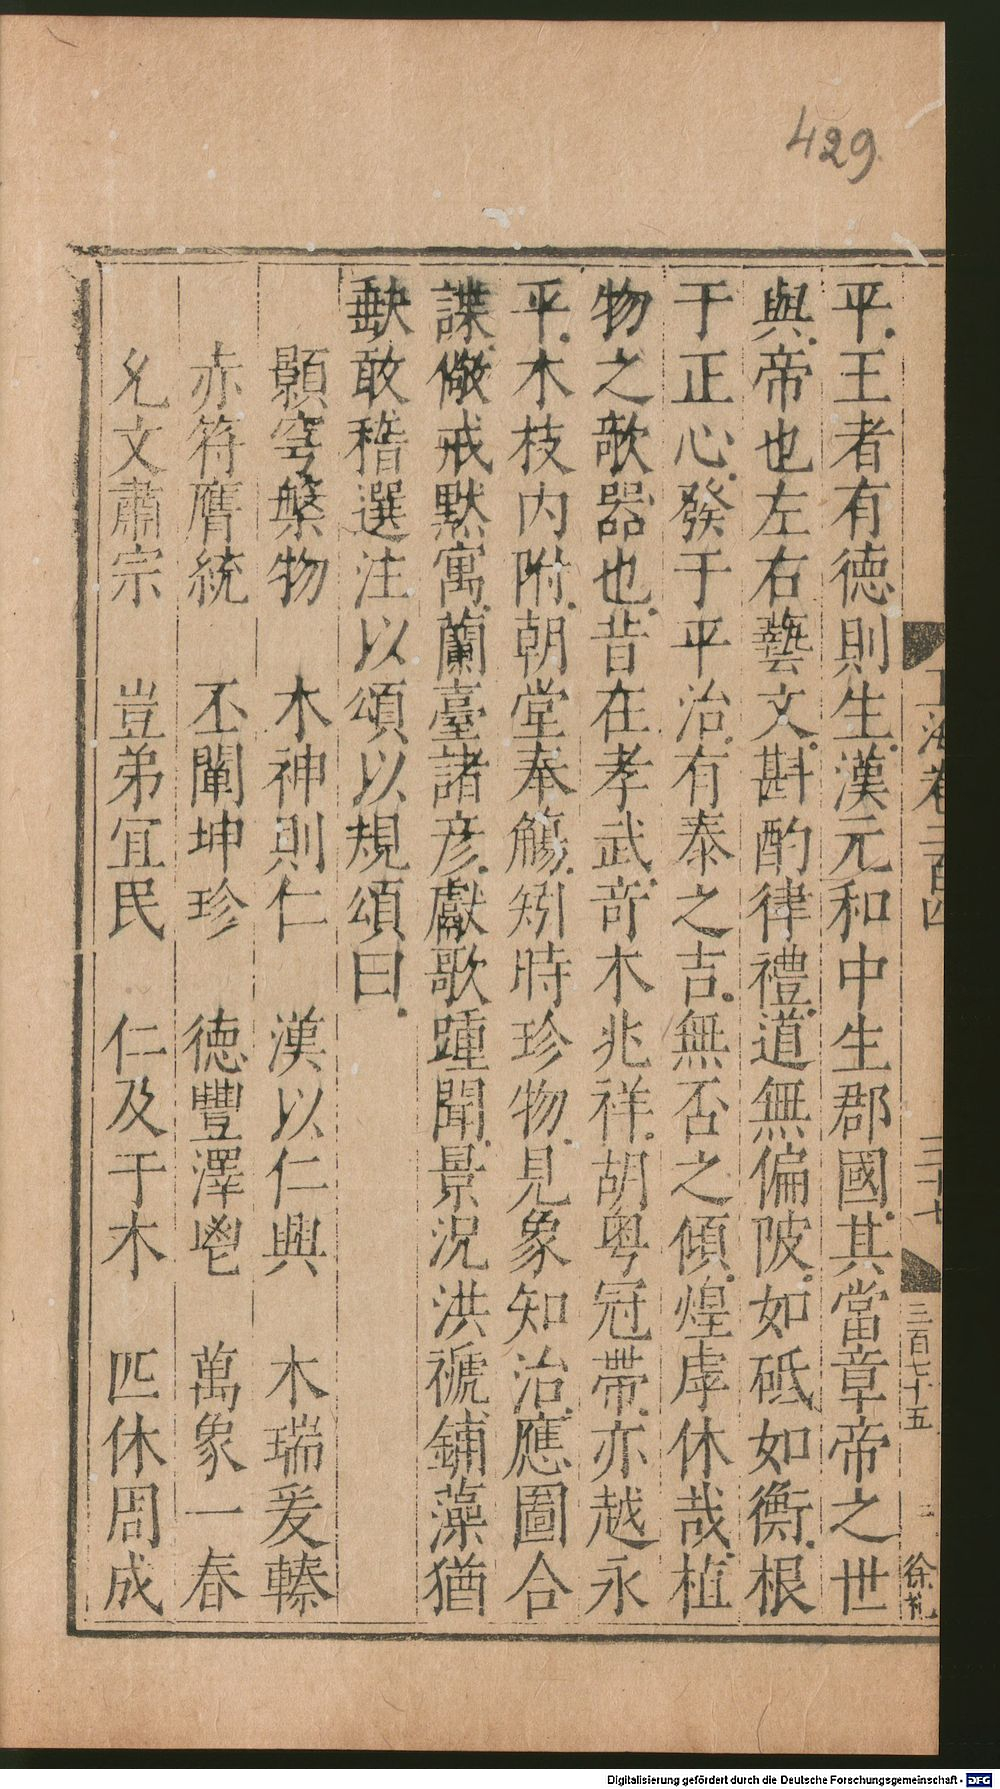 429
玉海卷二百四
三十七
三百七十五
徐礼
平王者有德則生漢元和中生郡國其當章帝之世
與帝也左右藝文斟酌律禮道無偏陂如砥如衡根
于正心發于平治有泰之吉無否之傾煌虖休哉植
物之歌器也昔在孝武竒木兆祥胡粤冠帶亦越永
平木枝内附朝堂奉觴矧時珍物見象知治應圖合
諜儆戒默寓蘭臺諸彦獻歌踵聞景况洪褫鋪藻猶
缺敢稽選注以頌以規頌曰
顥穹槃物 木神則仁 漢以仁興 木瑞爰轃
赤符膺統 丕闡坤珍 德豐澤鬯 萬象一春
允文肅宗 豈弟宜民 仁及于木 匹休周成
Digitalisierung gefördert durch die Deutsche Forschungsgemeinschaft - DFG